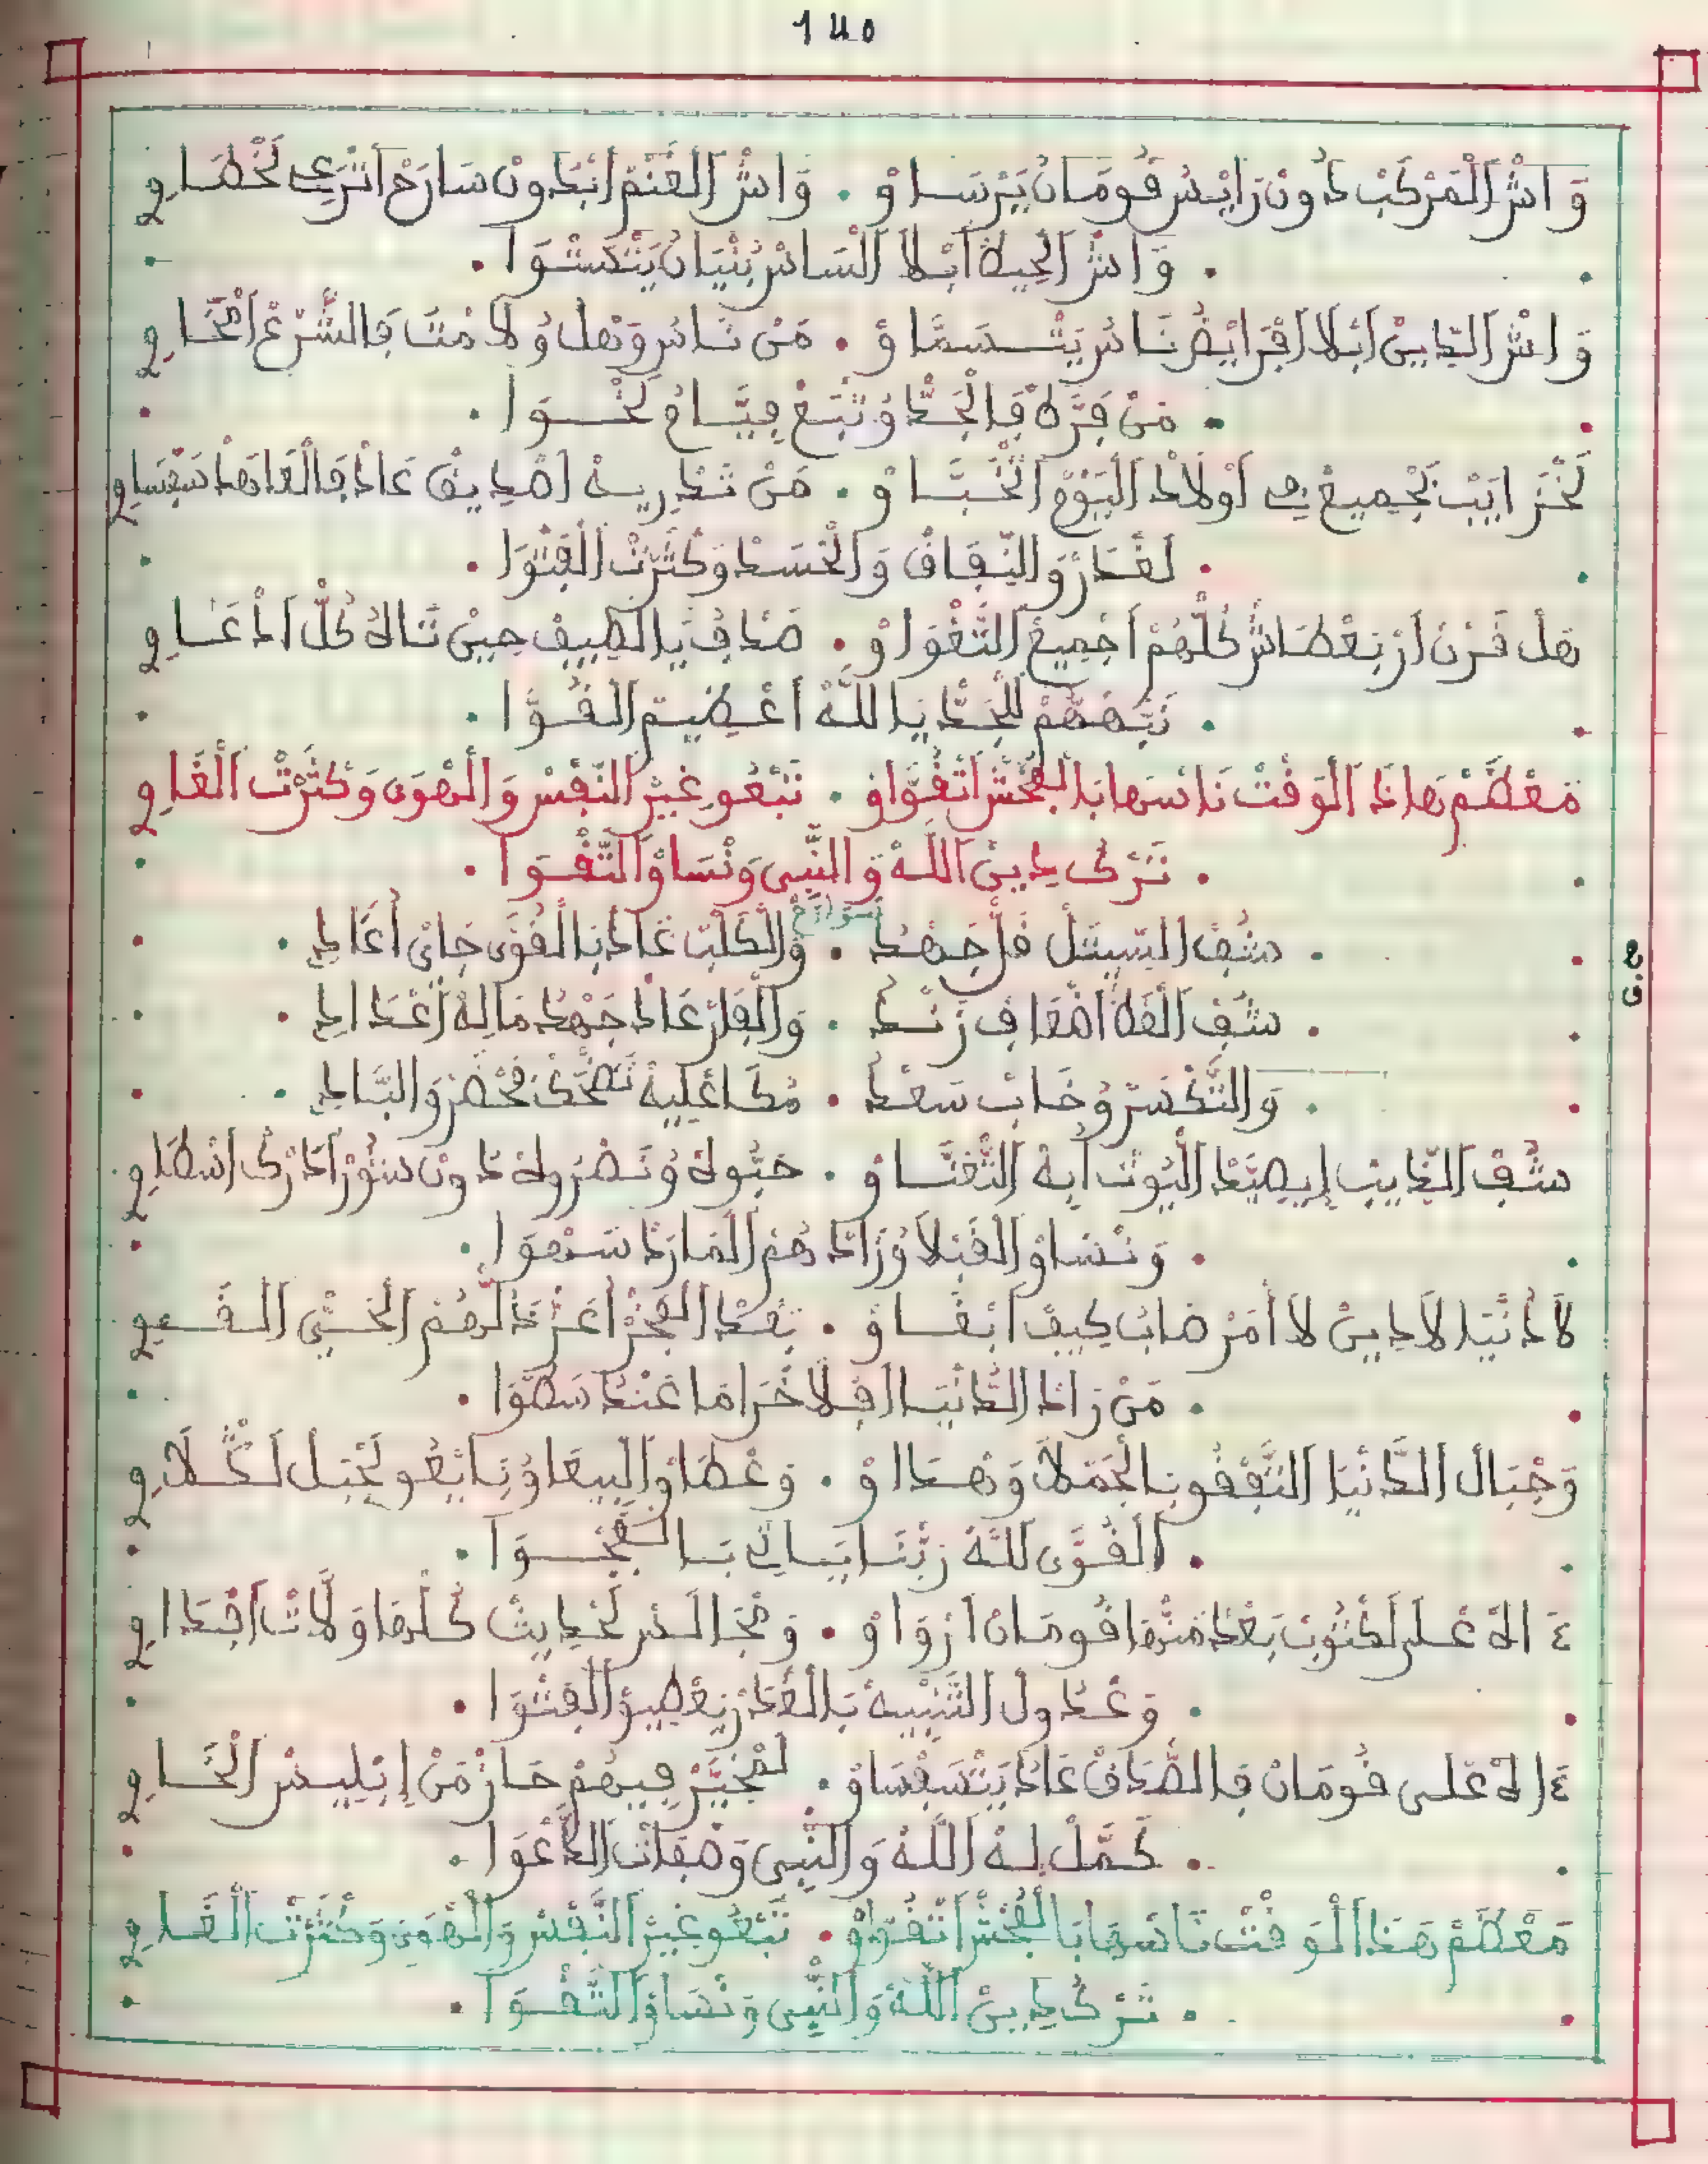 140
وَاشْ اَلْمَرْكَبْ دُونْ رَايْسْ قُومَانْ يَرْسَاوْ . وَاشْ اَلْغْنَمْ اَبْدُونْ سَارَحْ اَتْرَعِى لَخْطَاوِ
. وَاشْ اَلْحِيطْ اَبْلَا اَلْسَاسْ بُنْيَانُ يَتْسْتْوَا .
وَاشْ اَلدِّينْ اَبْلَا اَفْرَايْضْ نَاسُ يَتْسَمَّاوْ . مَنْ نَاسْ وَهْلُ وُلَا مْتَ فَالشَّرْعْ
. مَنْ فَرَّطْ فَالْجَدّْ وُتْبَعْ فِيَّاحْ لَخْوَا .
لَخْزَايَبْ لَجْمِيعْ فِى اَوْلَادْ اَلْيَوْمْ اَلْخَبَّاوْ . مَنْ تَدْرِيهْ اَصْدِيقْ عَادْ فَالْعَاهْدْ
. لَغْدَرْ وَالنِّفَاقْ وَالْحَسَدْ وَكَثْرَتْ اَلْفَتْوَا .
هَلْ قَرْنْ اَرْبَعْطَاشْ كُلْهُمْ اَجْمِيعْ اَلتَّغْوَاوْ . صَدْفْ يَالْطِيفْ حِينْ تَاكْ كُلْ اَدْعَاوِ
. نَبَّهْهُمْ لَلْجَدّْ يَا اللَّهْ اَعْظِيمْ اَلْقُوَّا .
مَعْظَمْ هَاذَا اَلْوَقْتْ نَاسْهَا بَالْفُحْشْ اَتْقُوَّاوْ . تَبْعُو غِيرْ اَلنَّفْسْ وَالْهْوَى وَكَثْرَتْ اَلْغَاوِ
. تَرْكُ دِينْ اَللَّهْ وَالنَّبِى وَنْسَاوْ اَلتَّقْوَا .
. شُفْ اَلسّْبَتَلْ فَلْ جَهْدُ . وَالْكَلْبْ عَادْ بَالْقُوَّى جَايْ اَعَّادِ .
. شُفْ اَلْقَطْ اَضْعَافْ زَنْدُ . وَالْفَارْ عَادْ جَهْدُ مَالِهْ اَعْدَادِ .
. وَالنّْكْسَرْ وُخَابْ سَعْدُ . مْكَا عْلِيهْ تَضْحَكْ لَحْضَرْ وَالْبَادِ .
شُفْ اَلذِّيبْ اِيصَيَّدْ اَلْيُوثْ اَبِهْ اَلتَّغْنَّاوْ . حَبُّوهْ وُنَصْرُوهْ دُونْ شُورْ اَدْرَكْ اَسْطَاوِ
. وَنْسَاوْ اَلْقَبْلَا وُزَادْهُمْ اَلْمَارَدْ سَهْوَا .
لَا دُنْيَا لَا دِينْ لَا اَمَرْ ضَابْ كِيفْ اَبْقَاوْ . بَعْدْ اَلْفَجْرْ اَعْزَدْ لْهُمْ اَلْخَتِّى اَلْقَعِو
. مَنْ زَادْ اَلدَّنْيَا اَفْلَاخْرَا مَا عَنْدُ سَطْوَا .
وَجْبَالْ اَلدَّنْيَا اَلتَّقْفُو بَالْجَمْلَا وَهْدَاوْ . وَعْطَاوْ اَلْبِيعَا وُتَابْعُو لَجْبَلْ لَكْحَلَاوِ
. اَلْقُوَّى لَلَّهْ رَبْنَا يَبَالِى بَالْفَجْوَا .
عَ الَّهْ عْلَى لَكْتُوبْ بَعْدْ مَنْهَا قُومَانْ اَرْوَاوْ . وَمْجَالَسْ لَحْدِيثْ كُلْهَا وَلَّاتْ اَفْدَاوِ
. وَعْدُولْ اَلتَّنْبِيهْ بَالْغْدَرْ يَعْطِيوْ اَلْفَتْوَا .
عَ الَّهْ عْلَى قُومَانْ فَالصّْدَاقْ عَادْ يَتْسَفْسَاوْ . لَمْخَيَّرْ فِيهُمْ حَازْ مَنْ اِبْلِيسْ اَلْخَاوِ
. كَمَّلْ لِهْ اَللَّهْ وَالنْبِى وَصْفَاتْ اَلدَّعْوَا .
مَعْظَمْ هَذَا اَلْوَقْتْ نَاسْهَا بَالْفُحْشْ اَتْقُوَّاوْ . تَبْعُو غِيرْ اَلنَّفْسْ وَالْهْوَى وَكَثْرَتْ اَلْغَاوِ
. تَرْكُ دِينْ اَللَّهْ وَالنَّبِى وَنْسَاوْ اَلتَّقْوَا .